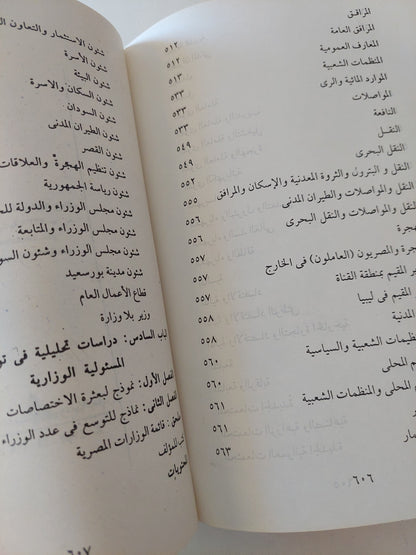 المرافق ٥١٢
المرافق العامة ٥١٢
المعارف العمومية ٥١٣
المنظمات الشعبية ٥٣٣
الموارد المائية والرى ٥٣٣
المواصلات ٥٣٣
النافعة ٥٤٩
النقل ٥٤٩
النقل البحرى ٥٥٢
النقل و البترول والثروة المعدنية والإسكان والمرافق ٥٥٥
النقل والمواصلات والطيران المدنى ٥٥٦
النقل والمواصلات والنقل البحرى ٥٥٦
هجرة ٥٥٧
والمصريون (العاملون) فى الخارج ٥٥٧
المقيم بمنطقة القناة ٥٥٧
المقيم فى ليبيا ٥٥٨
المدنية ٥٥٨
الشعبية والسياسية ٥٦٠
المحلى ٥٦٠
المحلى والمنظمات الشعبية ٥٦١
٥٦١
٥٦٣
٦٠٦
شئون الاستثمار والتعاون
شئون الأسرة
شئون البيئة
شئون السكان والاسرة
شئون السودان
شئون الطيران المدنى
شئون القصر
شئون تنظيم الهجرة والعلاقات
شئون رياسة الجمهورية
شئون مجلس الوزراء والدولة
شئون مجلس الوزراء والمتابعة
شئون مجلس الوزراء وشئون
شئون مدينة بورسعيد
قطاع الأعمال العام
وزير بلا وزارة
السادس: دراسات تحليلية فى
المسئولية الوزارية
الأول: نموذج لبعثرة الاختصاصات
الثانى: نماذج للتوسع فى عدد الوزراء
قائمة الوزارات المصرية
للمؤلف
المحتويات
٦٠٧